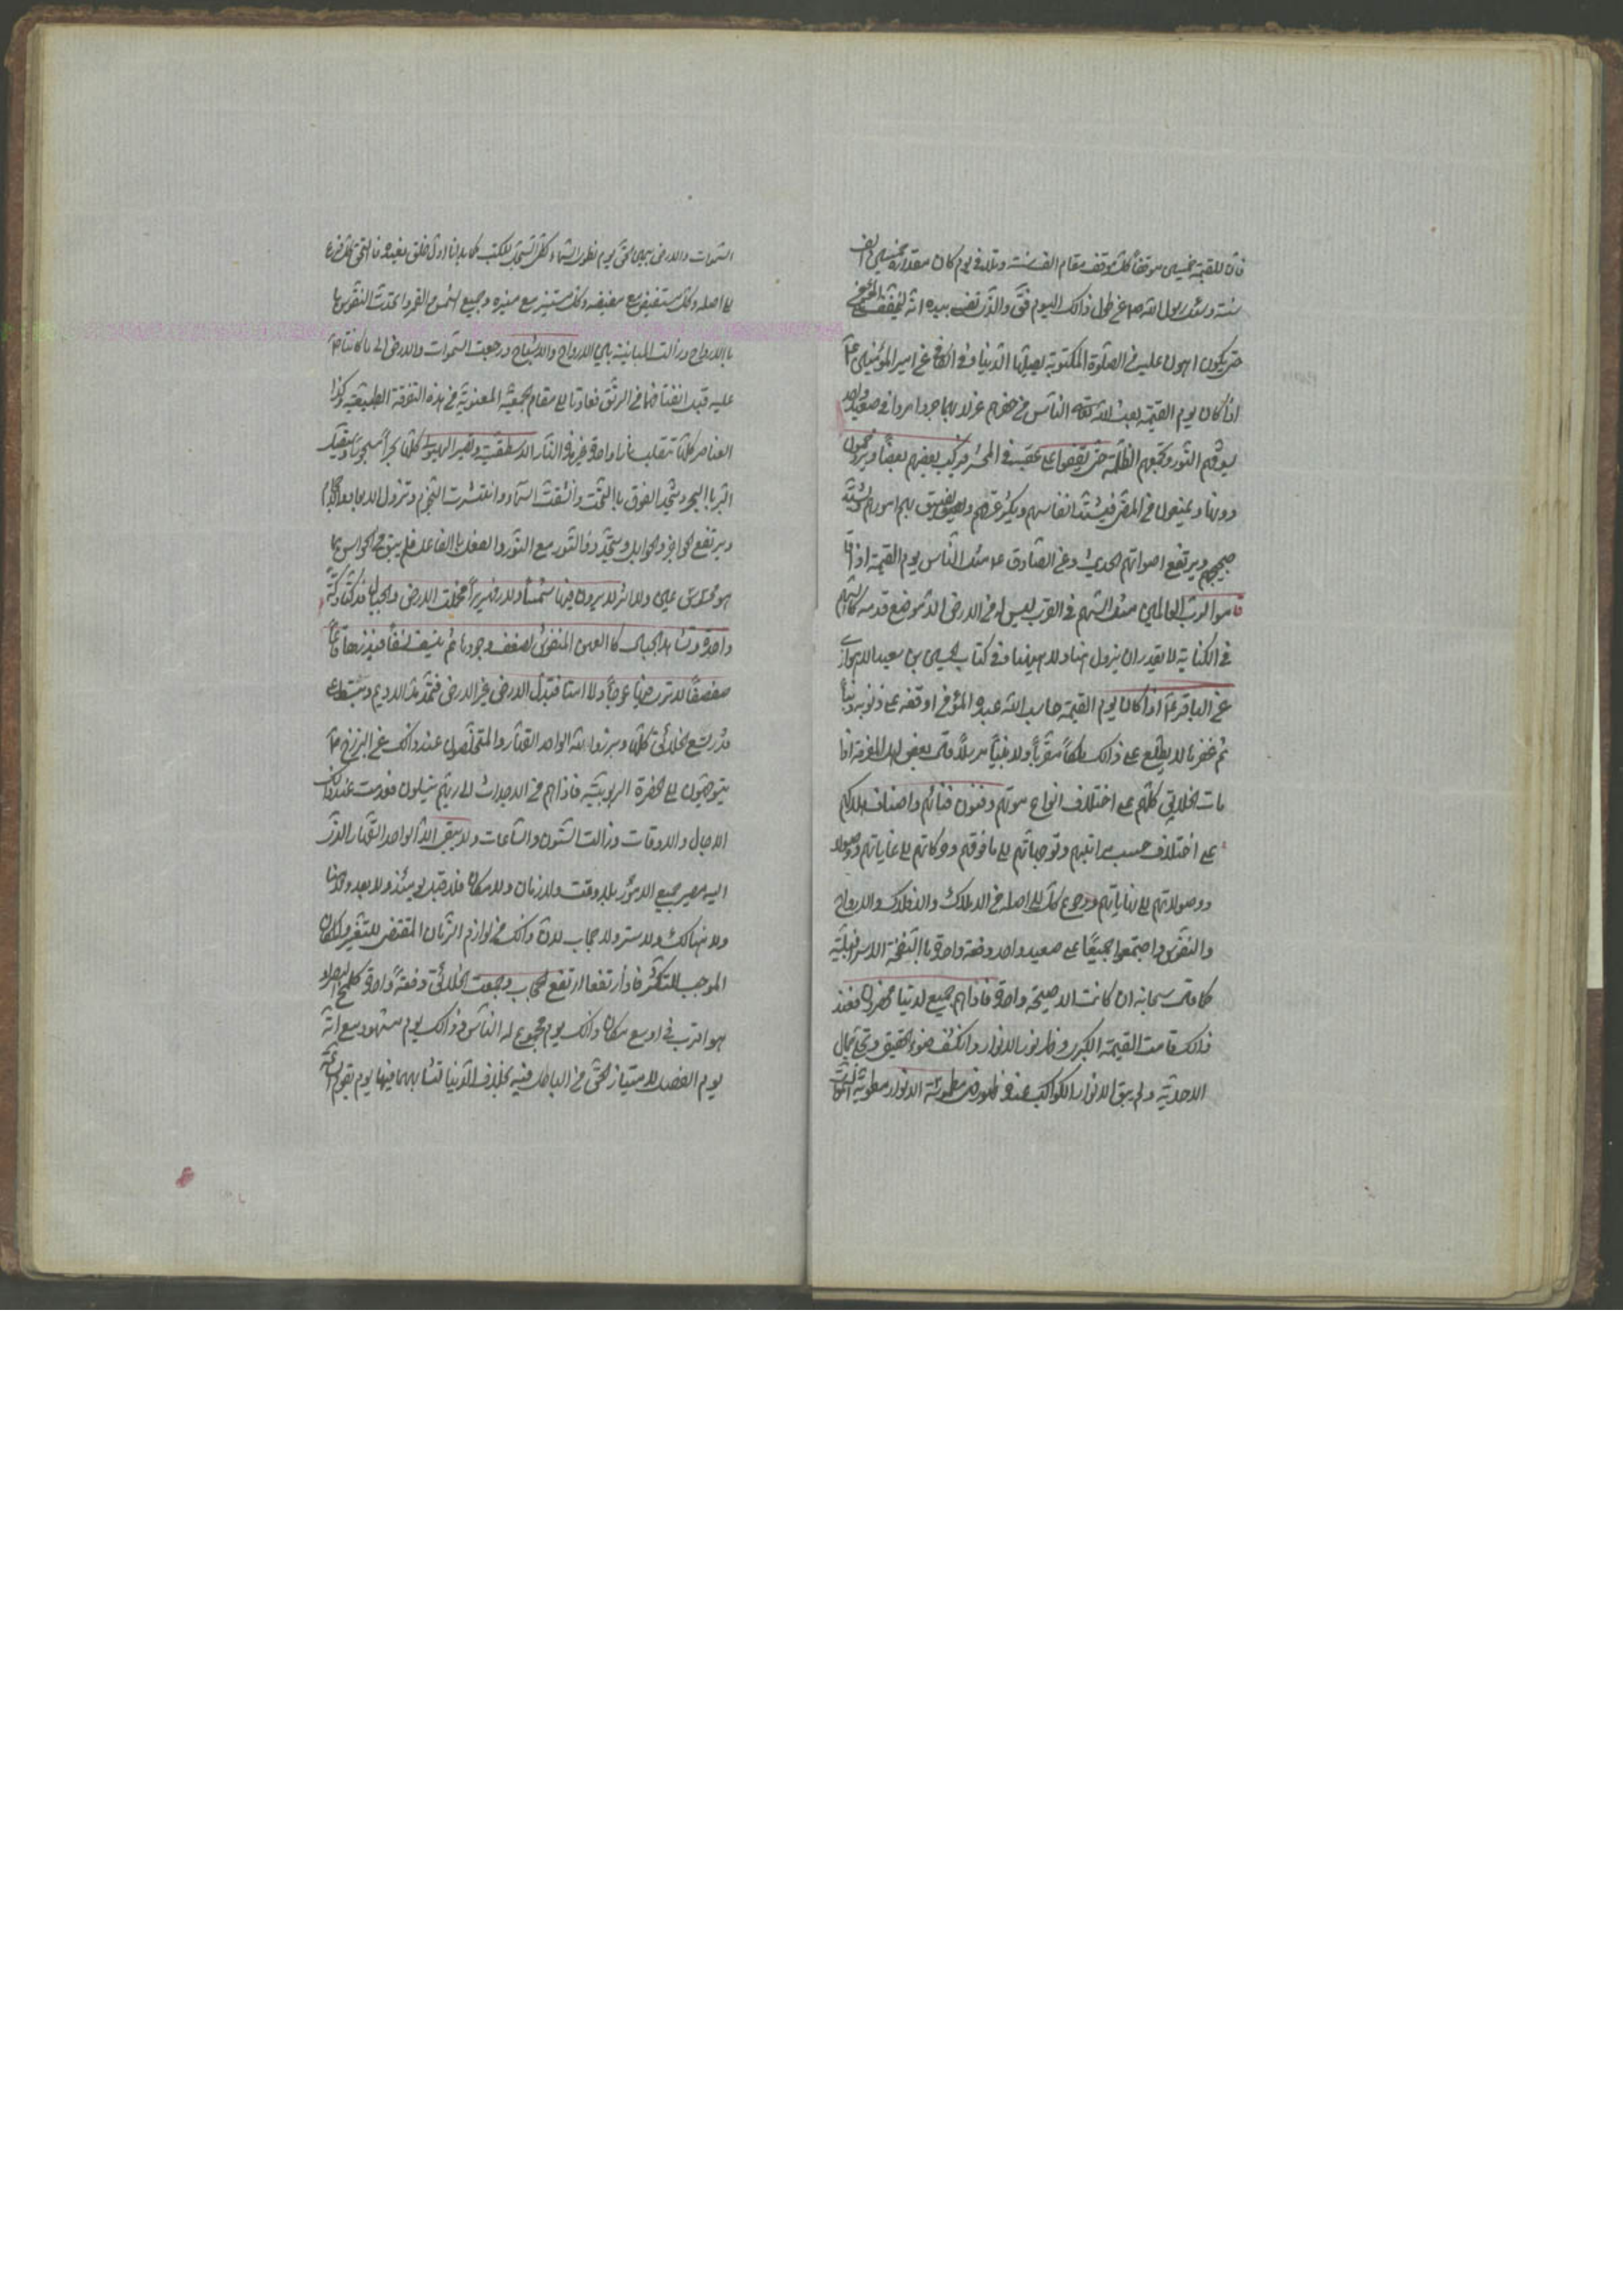 فان للقيمة خمسين موقفاً كل موقف مقام الف سنة وتلا في يوم كان مقداره خمسين الف
سنة وسئل رسول الله ص عن طول ذالك اليوم فق والذي نفسي بيده انه ليخفف على المؤمن
حتى يكون اهون عليه من الصلوة المكتوبة يصليها في الدنيا وفي الكافي عن امير المؤمنين ع
اذا كان يوم القيمة بعث الله الناس من حفرهم عزلا بهما جردا مردا في صعيد واحد
يسوقهم النور وتجمعهم الظلمة حتى يقفوا على عقبة في المحشر فيركب بعضهم بعضاً ويزدحمون
دونها ويمنعون من المضي فيشتد انفاسهم ويكثر عرقهم ويضيق بهم امورهم ويشتد
ضجيجهم ويرتفع اصواتهم الحديث وعن الصادق ع مثل الناس يوم القيمة اذا
قاموا لرب العالمين مثل السهم في القرب ليس له من الارض الا موضع قدمه كالسهم
في الكنانة لا يقدر ان يزول هنا ولا هيهنا وفي كتاب الحسين بن سعيد الاهوازي
عن الباقر ع اذا كان يوم القيمة حاسب الله عبده المؤمن اوقفه على ذنوبه ذنباً ذنباً
ثم غفرها لا يطلع على ذالك ملكاً مقرباً ولا نبياً مرسلاً وقال بعض اهل المعرفة اذا
مات الخلايق كلهم على اختلاف انواع موتهم وفنون فنائهم واصناف هلاكهم
على اختلاف حسب مراتبهم وتوجهاتهم الى ما فوقهم وحركاتهم الى غاياتهم
ووصولاتهم الى نهاياتهم ورجوع كل الى اصله من الاملاك والافلاك والارواح
والنفوس واجتمعوا جميعاً على صعيد واحد دفعة واحدة بالنفخة الاسرافيلية
كما قال سبحانه ان كانت الا صيحة واحدة فاذا هم جميع لدينا محضرون فعند
ذالك قامت القيمة الكبرى وظهر نور الانوار وانكشف ضوء الحقيقي وتجلى جمال
الاحدية ولم يبق لانوار الكواكب عنده ظهور
السموات والارض بيمين الحق يوم نطوي السماء كطي السجل للكتب كما بدانا اول خلق نعيده فالتحق كل فرع
الى اصله وكل مستفيض مع مفيضه وكل مستنير مع منيره وجمع الشمس والقمر واتحدت النفوس
بالارواح وزالت المباينة بين الارواح والاشباح ورجعت السموات والارض الى ما كانتا
عليه قبل انفتاقهما من الرتق فعادتا الى مقام الجمعية المعنوية من هذه التفرقة الطبيعية وكذا
العناصر كلها تنقلب نارا واحدة غير هذه النار الاسطقسية وتصير الهيولى كلها بحراً مسجوراً ويتصل
البر بالبحر ويتحد الفوق بالتحت وانشقت السماء وانتثرت النجوم وتزول الابعاد والاجرام
ويرتفع الحواجز والحوايل ويتحد ذو النور مع النور والفعل بالفاعل فلم يبق من الحواس
هو محسوس عين ولا اثر لا يرون فيها شمساً ولا زمهريراً فحملت الارض والجبال فدكتا دكة
واحدة وتشاهد الجبال كالعهن المنفوش لضعف وجودها ثم ينسفها نسفاً فيذرها قاعاً
صفصفاً لا ترى فيها عوجاً ولا امتا فتبدل الارض غير الارض فتمد مد الاديم وتبسط
فيسع الخلائق كلها وبرزوا لله الواحد القهار والمتخلصون عند ذالك عن البرزخ
يتوجهون الى الحضرة الربوبية فاذا هم من الاجداث الى ربهم ينسلون فعدمت عند ذالك
الاجال والاوقات وزالت السنون والساعات ولا يبقى الا الواحد القهار الذي
اليه مصير جميع الامور بلا وقت ولا زمان ولا مكان فلا قبل يومئذ ولا بعد ولا هنا
ولا هنالك ولا ستر ولا حجاب لان ذالك من لوازم الزمان المقتضي للتغير والمكان
الموجب للتكثر فاذا ارتفعا ارتفع الحجاب وجمعت الخلائق دفعة واحدة كلمح البصر او
هو اقرب في اوسع مكان وذالك يوم مجموع له الناس وذالك يوم مشهود مع انه
يوم الفصل لامتياز الحق من الباطل فيه بخلاف الدنيا لتشابههما فيها يوم تقوم الساعة